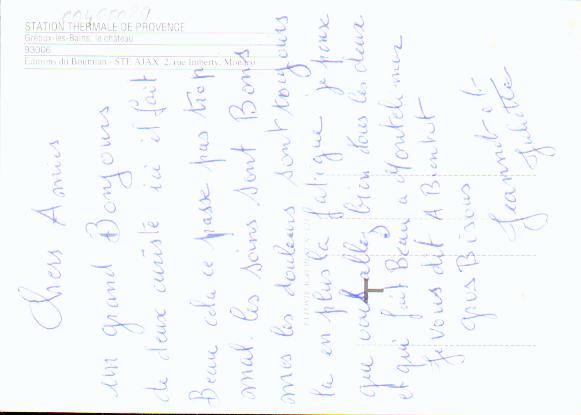 STATION THERMALE DE PROVENCE
Gréoux-les-Bains, le château
93006
Editions du Boumian - STE AJAX 2, rue Imberty, Monaco
Chers Amies
un grand Bonjours
de deux curiste ici il fait
Beau cela ce passe pas trop
mal. les soins sont Bons
mes les douleurs sont toujours
la en plus la fatigue je panse
que vous allez bien tous les deux
et qui fait Beau a Montelimar
Je vous dit A Bientot
gros Bisous
Jeannot et
Juliette